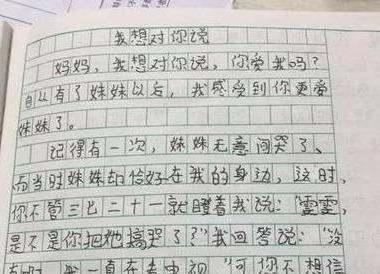 我想对你说
妈妈，我想对你说，你爱我吗？
自从有了妹妹以后，我感受到你更爱
妹妹了。
记得有一次，妹妹无意间哭了、
而当时妹妹却恰好在我的身边，这时，
你不管三七二十一就瞪着我说："雷雷，
是不是你把他搞哭了？"我回答说："没
有啊，我一直在看电视"可你不相信